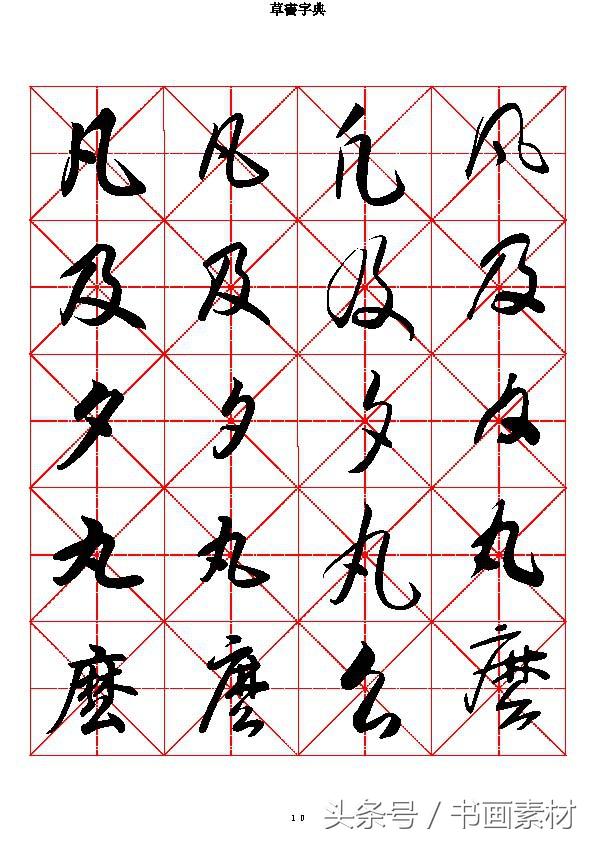 草書字典
凡 凡 凡 凡
及 及 及 及
夕 夕 夕 夕
丸 丸 丸 丸
麼 麼 么 麼
10
头条号 / 书画素材